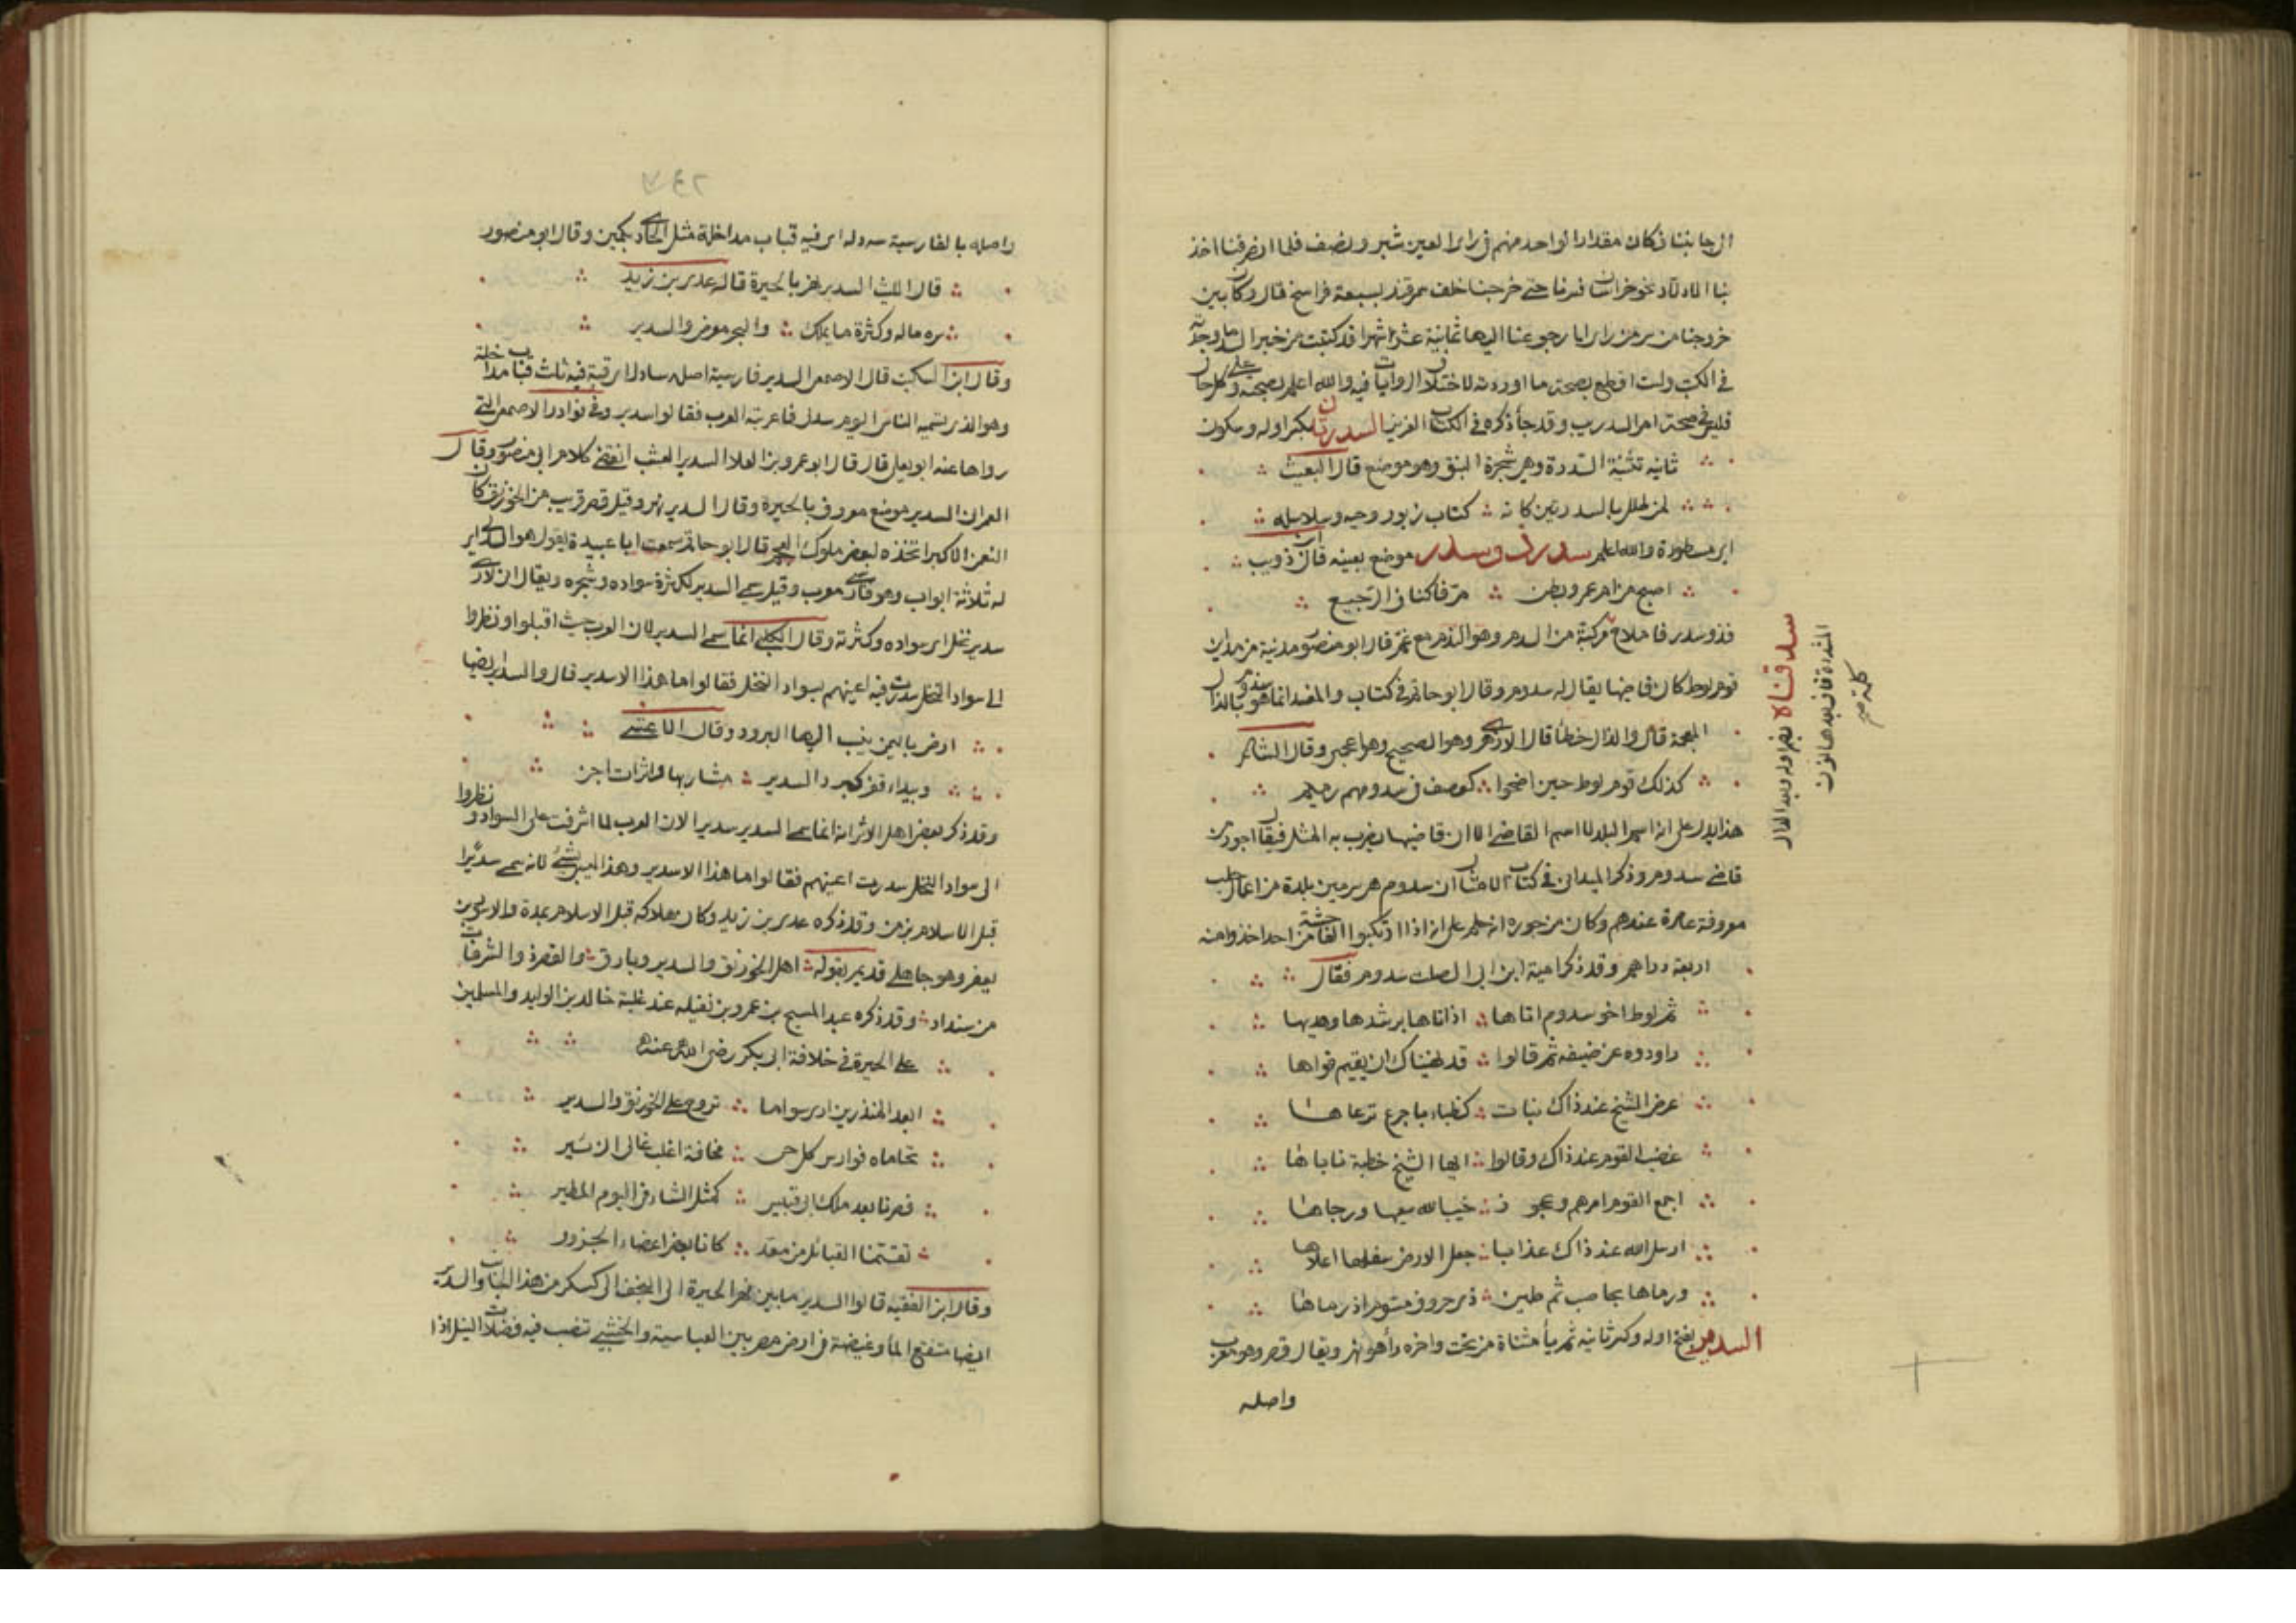 الى جانبنا فكان مقدار الواحد منهم في راى العين شبر ونصف فلما انصرفنا اخذ
بنا الادلاء نحو خراسان فسرنا حتى خرجنا خلف سمرقند بسبعة فراسخ قال وكان بين
خروجنا من سر من راى الى رجوعنا اليها ثمانية عشر شهرا قد كتبت من خبر السد ما وجدته
في الكتب ولست اقطع بصحة ما اوردته لاختلاف الروايات فيه والله اعلم بصحته وعلى كل حال
فليس في صحة امر السد ريب وقد جاء ذكره في الكتاب العزيز السدرتان بكسر اوله وسكون
ثانيه تثنية السدرة وهي شجرة النبق وهو موضع قال البعيث
لمن طلل بالسدرتين كانه كتاب زبور وحيه وسلاسله
اى مسطورة والله اعلم سدر ذو سدر موضع بعينه قال ابو ذويب
اصبح من ام عمرو بطن مر فاكناف الرجيع
فذو سدر فاملاح مركبة من السدر وهو الندم مع غم قال ابو منصور مدينة من مداين
قوم لوط كان قاضيها يقال له سدوم وقال ابو حاتم في كتاب والمفسد انما هو سذوم بالذال
المعجمة قال والدال خطأ قال الازهرى وهو الصحيح وهو اعجمى وقال الشاعر
كذلك قوم لوط حين اضحوا كعصف في سدومهم رميم
هذا يدل على انه اسم البلد لا اسم القاضى الا ان قاضيها يضرب به المثل فيقال اجور من
قاضى سدوم وذكر الميدانى في كتاب الامثال ان سدوم هى سرمين بلدة من اعمال حلب
معروفة عامرة عندهم وكان من جوره انه حكم على انه اذا ارتكبوا الفاحشة من احد اخذوا منه
اربعة دراهم وقد ذكر امية ابن ابى الصلت سدوم فقال
ثم لوط اخو سدوم اتاها اذ اتاها برشدها وهديها
راودوه عن ضيفه ثم قالوا قد نهيناك ان يقيم قراها
عرض الشيخ عند ذاك بنات كظباء باجرع ترعاها
غضب القوم عند ذاك وقالوا ايها الشيخ خطبة ناباها
اجمع القوم امرهم وعجوز خيب الله سعيها ورجاها
ارسل الله عند ذاك عذابا جعل الارض سفلها اعلاها
ورماها بحاصب ثم طين ذى حروف مسوم اذ رماها
السدير بفتح اوله وكسر ثانيه ثم ياء مثناة من تحت واخره راء هو نهر ويقال قصر وهو معرب
واصله
سد قناة بضم اوله وبعد الدال
المشددة قاف بعدها نون
كلمة صح
٢٤٧
واصله بالفارسية سه دله اى فيه قباب مداخلة مثل الحادى بكمين وقال ابو منصور
قال الليث السدير نهر بالحيرة قاله عدى بن زيد
سره ماله وكثرة ما يملك والبحر معرض والسدير
وقال ابن السكيت قال الاصمعى السدير فارسية اصله سادل اى قبة فيه ثلاث قباب مداخلة
وهو الذى يسميه الناس اليوم سدلى فاعربته العرب فقالوا سدير وفي نوادر الاصمعى التى
رواها عنه ابو يعلى قال قال ابو عمرو بن العلا السدير العشب انقضى كلام ابى منصور وقال
العمرانى السدير موضع معروف بالحيرة وقال السدير نهر وقيل قصر قريب من الخورنق كان
النعمن الاكبر اتخذه لبعض ملوك العجم قال ابو حاتم سمعت ابا عبيدة يقول هو السدلى اى
له ثلاثة ابواب وهو فارسى معرب وقيل سمى السدير لكثرة سواده وشجره ويقال انى لارى
سدير نخل اى سواده وكثرته وقال الكلبى انما سمى السدير لان العرب حيث اقبلوا ونظروا
الى سواد النخل سدرت فيه اعينهم بسواد النخل فقالوا ما هذا الا سدير قال والسدير ايضا
ارض باليمن ينسب اليها البرود وقال الاعشى
وبيداء قفر كبرد السدير مشاربها داثرات اجن
وقد ذكر بعض اهل الاثر انه انما سمى السدير سديرا لان العرب لما اشرفت على السواد ونظروا
الى سواد النخل سدرت اعينهم فقالوا ما هذا الا سدير وهذا ليس بشئ لانه سمى سديرا
قبل الاسلام بزمن وقد ذكره عدى بن زيد وكان هلاكه قبل الاسلام بمدة والاسود بن
يعفر وهو جاهلى قديم بقوله اهل الخورنق والسدير وبارق والقصر ذى الشرفات
من سنداد وقد ذكره عبد المسيح بن عمرو بن نفيله عند غلبة خالد بن الوليد والمسلمين
على الحيرة في خلافة ابى بكر رضى الله عنه
ابعد المنذرين ارى سواما تروح على الخورنق والسدير
تحاماه فوارس كل حى مخافة اغلب عالى الزئير
فصرنا بعد ملك ابى قبيس كمثل الشاء في اليوم المطير
تقسمنا القبائل من معد كانا بعض اعضاء الجزور
وقال ابن الفقيه قالوا السدير ما بين نهر الحيرة الى النجف الى كسكر من هذا الجانب والسدير
ايضا مستنقع الماء وغيضة في ارض مصر بين العباسية والخشبى تنصب فيه فضلات النيل اذا